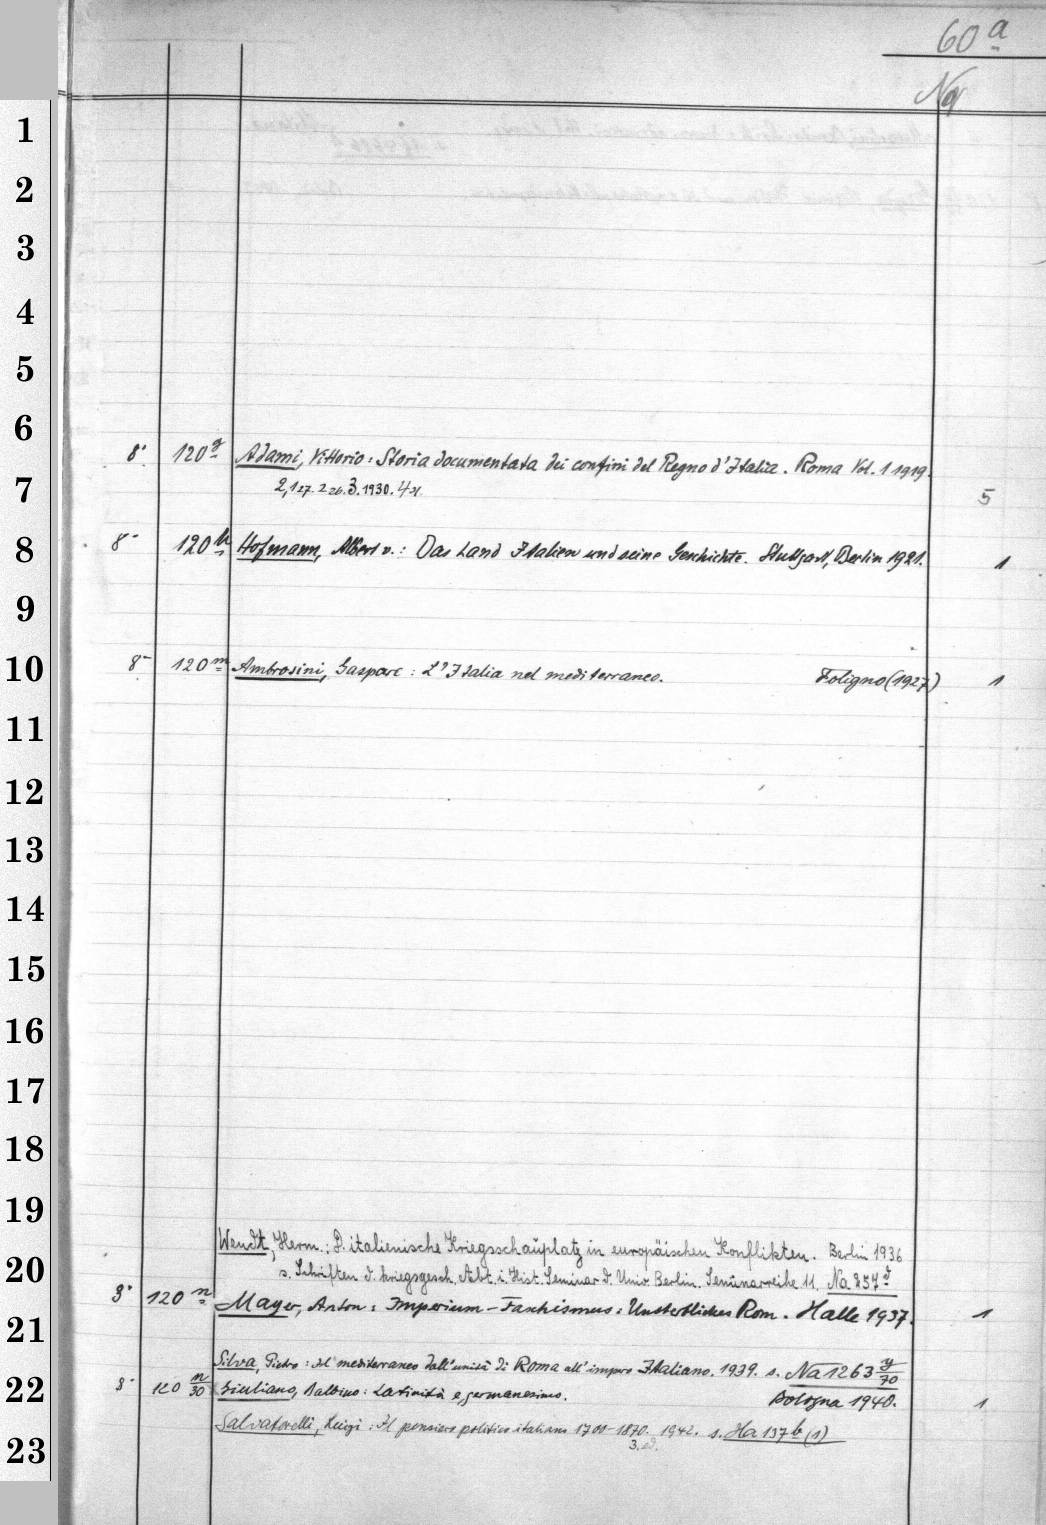 60 a
Nq
1
2
3
4
5
6
8° 120 g Adami, Vittorio: Storia documentata dei confini del Regno d'Italia. Roma Vol. 1 1919.
7 2,1 27. 2 26. 3. 1930. 4 31. 5
8 8° 120 h Hofmann, Albert v.: Das Land Italien und seine Geschichte. Stuttgart, Berlin 1921. 1
9
10 8° 120 m Ambrosini, Gaspare: L'Italia nel mediterraneo. Foligno (1927) 1
11
12
13
14
15
16
17
18
19
Wendt, Herm.: D. italienische Kriegsschauplatz in europäischen Konflikten. Berlin 1936
20 s. Schriften d. kriegsgesch. Abt. i. Hist. Seminar d. Univ. Berlin. Seminarreihe 11. Na 257 d
8° 120 n Mayer, Anton: Imperium-Faschismus: Unsterbliches Rom. Halle 1937. 1
21
Silva, Pietro: Il mediterraneo dall'unità di Roma all'impero Italiano. 1939. s. Na 1263 y/70
22 8° 120 n/30 Giuliano, Balbino: Latinità e germanesimo. Bologna 1940. 1
Salvatorelli, Luigi: Il pensiero politico italiano 1700-1870. 1942. s. Ha 137 b (1)
23 3. ed.